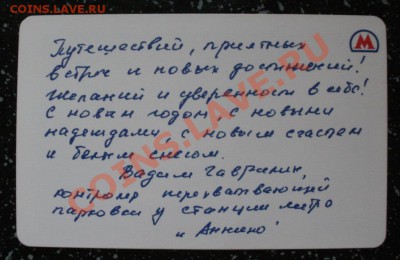 Путешествий, приятных
встреч и новых достижений!
Желаний и уверенности в себе!
С новым годом, с новыми
надеждами, с новым счастьем
и белым снегом.
Вадим Гавриник,
контролер перехватывающей
парковки у станции метро
"Аннино"
М
COINS.LAVE.RU
COINS.LAVE.RU
COINS.LAVE.RU